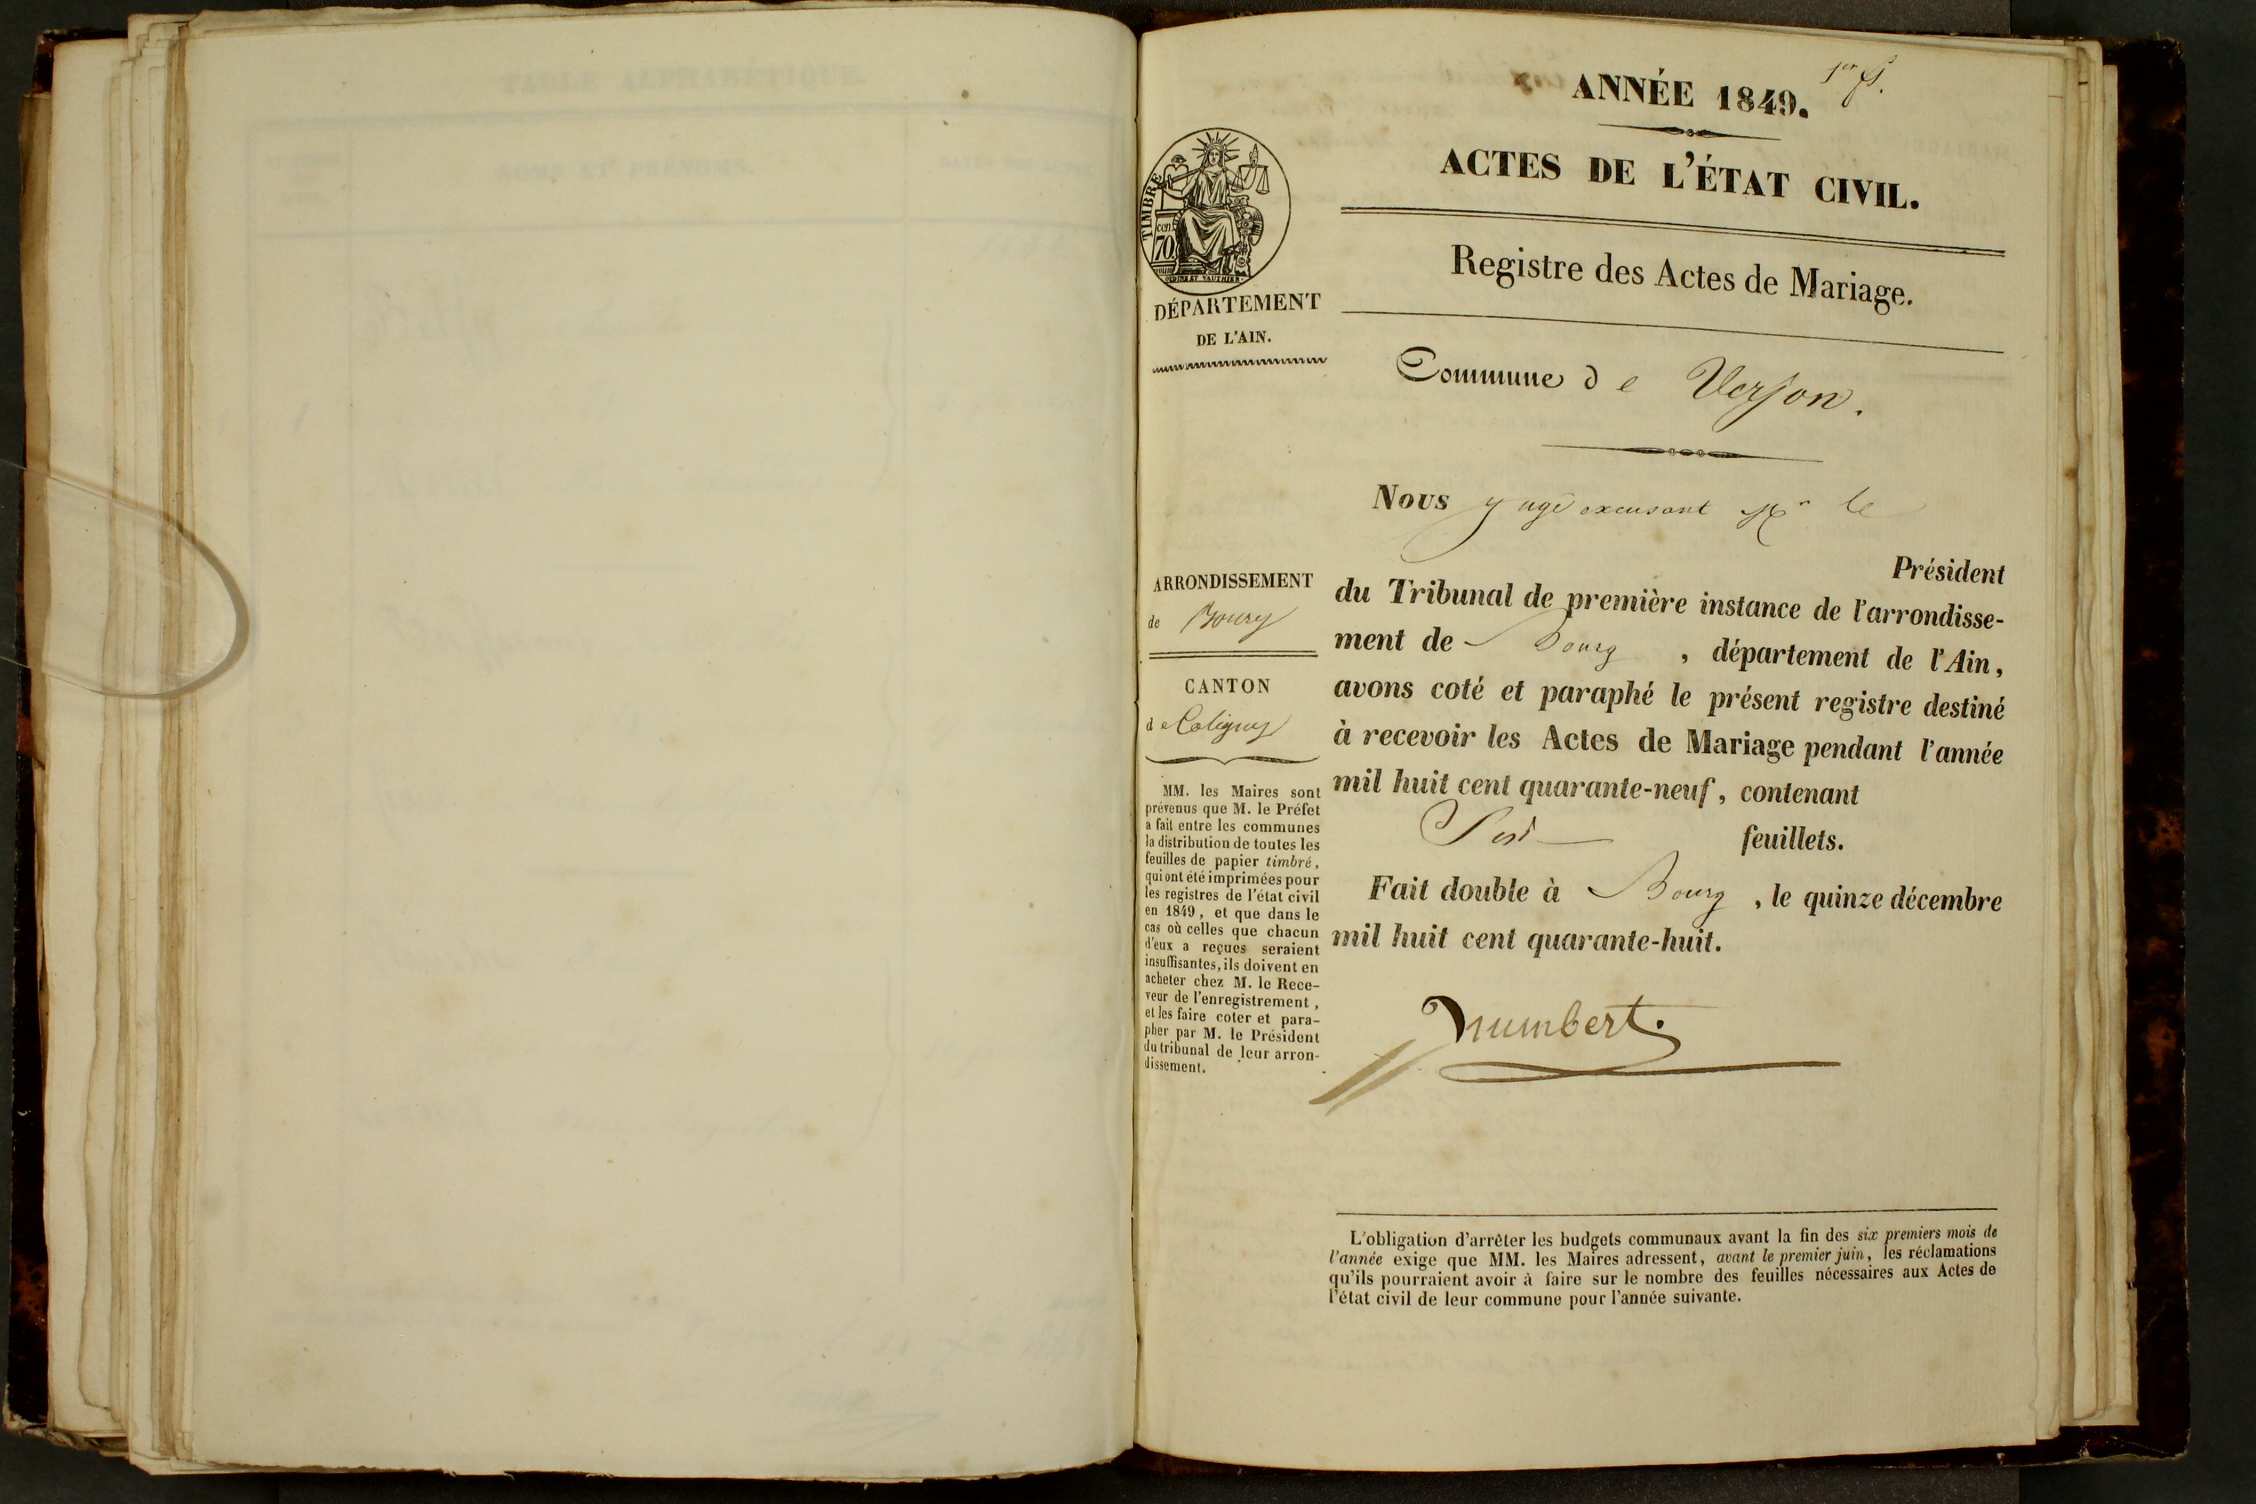 1er f.
ANNÉE 1849.
ACTES DE L'ÉTAT CIVIL.
Registre des Actes de Mariage.
TIMBRE
cen
70
DÉPARTEMENT
DE L'AIN.
Commune de Verjon.
Nous juge excusant Mr le
Président
du Tribunal de première instance de l'arrondisse-
ment de Bourg, département de l'Ain,
avons coté et paraphé le présent registre destiné
à recevoir les Actes de Mariage pendant l'année
mil huit cent quarante-neuf, contenant
feuillets.
Fait double à Bourg, le quinze décembre
mil huit cent quarante-huit.
humbert.
ARRONDISSEMENT
de Bourg
CANTON
de Coligny
MM. les Maires sont
prévenus que M. le Préfet
a fait entre les communes
la distribution de toutes les
feuilles de papier timbré,
qui ont été imprimées pour
les registres de l'état civil
en 1849, et que dans le
cas où celles que chacun
d'eux a reçues seraient
insuffisantes, ils doivent en
acheter chez M. le Rece-
veur de l'enregistrement,
et les faire coter et para-
pher par M. le Président
du tribunal de leur arron-
dissement.
L'obligation d'arrêter les budgets communaux avant la fin des six premiers mois de
l'année exige que MM. les Maires adressent, avant le premier juin, les réclamations
qu'ils pourraient avoir à faire sur le nombre des feuilles nécessaires aux Actes de
l'état civil de leur commune pour l'année suivante.
TABLE ALPHABÉTIQUE.
NOMS ET PRÉNOMS.
DATES DES ACTES.